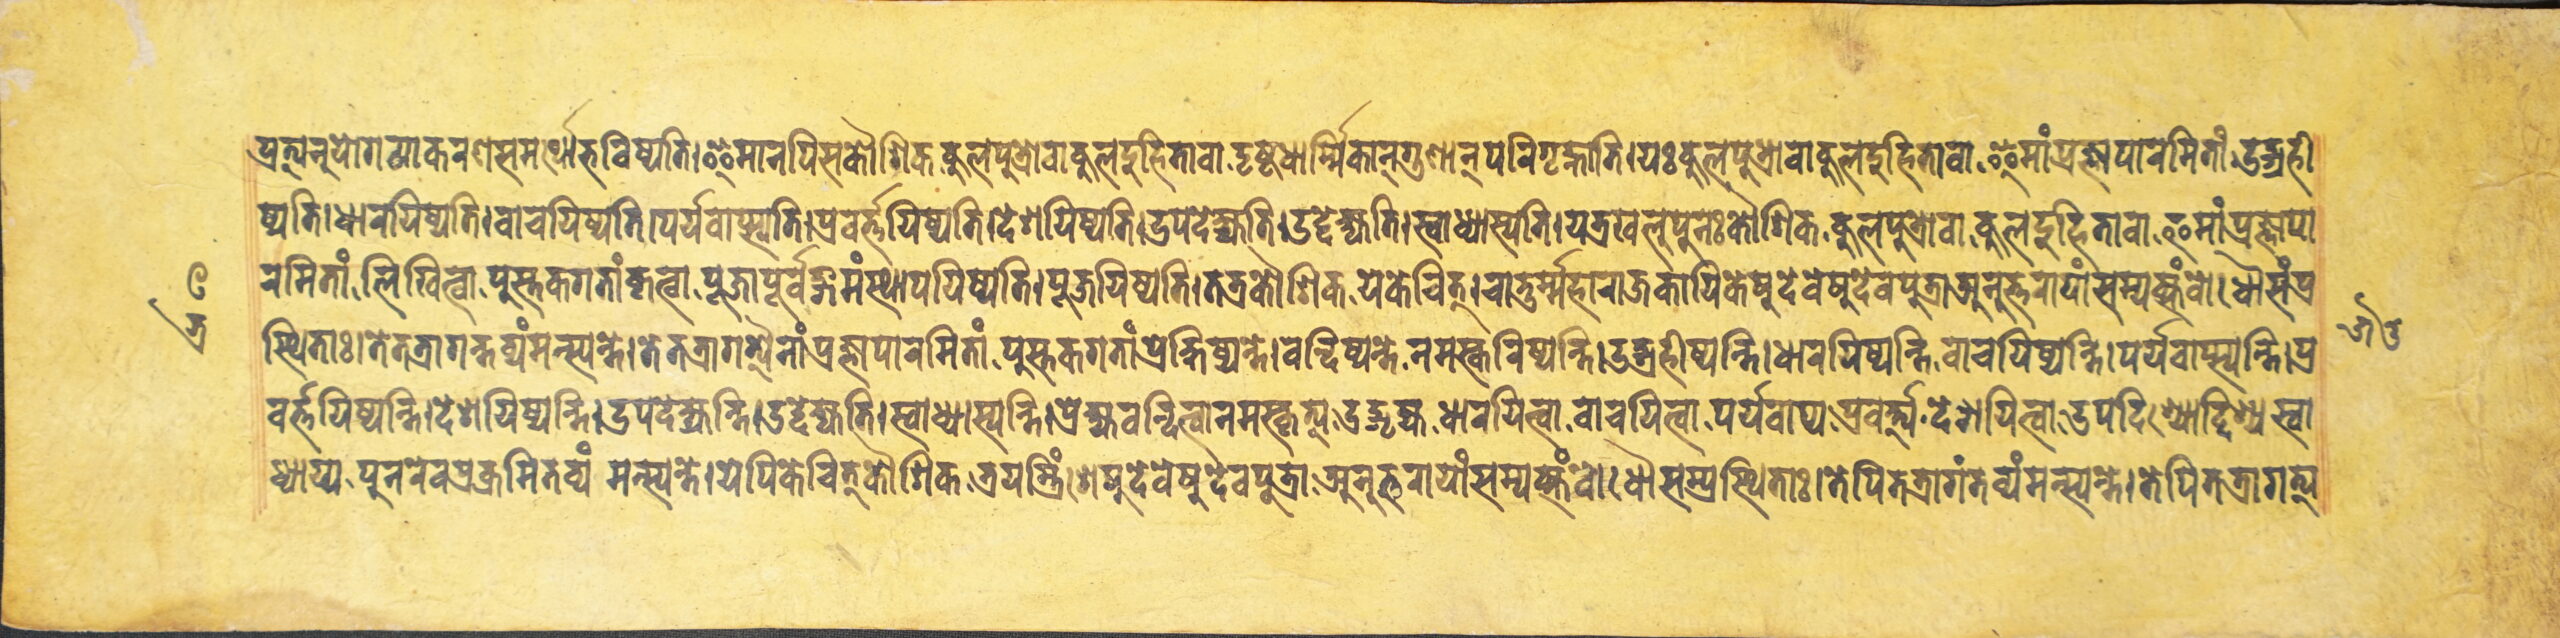 प्रत्यनुयोगव्याकरणसमर्थो भविष्यति। इमानपि स कौशिक कुलपुत्रो वा कुलदुहिता वा दृष्टधार्म्मिकान् गुणान् परिगृह्णाति। यः कुलपुत्रो वा कुलदुहिता वा इमां प्रज्ञापारमितां उद्ग्रही
ष्यति। धारयिष्यति। वाचयिष्यति। पर्यवाप्स्यति। प्रवर्त्तयिष्यति। देशयिष्यति। उपदेक्ष्यति। उद्देक्ष्यति। स्वाध्यास्यति। यत्र खलु पुनः कौशिक कुलपुत्रो वा कुलदुहिता वा इमां प्रज्ञापा
रमितां लिखित्वा पुस्तकगतां कृत्वा पूजापूर्वङ्गमं स्थापयिष्यति। पूजयिष्यति। तत्र कौशिक ये केचित्। चातुर्म्महाराजकायिकेषु देवेषु देवपुत्रा अनुत्तरायां सम्यक्संबोधौ संप्र
स्थिताः। ते तत्रागन्तव्यं मन्स्यन्ते। ते तत्रागत्यैनां प्रज्ञापारमितां पुस्तकगतां प्रेक्षिष्यन्ते। वन्दिष्यन्ते नमस्करिष्यन्ति। उद्ग्रहीष्यन्ति। धारयिष्यन्ति वाचयिष्यन्ति। पर्यवाप्स्यन्ति। प्र
वर्त्तयिष्यन्ति। देशयिष्यन्ति। उपदेक्ष्यन्ति। उद्देक्ष्यति। स्वाध्यास्यन्ति। प्रेक्ष्य वन्दित्वा नमस्कृत्य उद्गृह्य धारयित्वा वाचयित्वा पर्यवाप्य प्रवर्त्त्य देशयित्वा उपदिश्योद्दिश्य स्वा
ध्याय्य पुनरेव प्रक्रमितव्यं मन्स्यन्ते। येपि केचित् कौशिक त्रयस्त्रिंशेषु देवेषु देवपुत्रा अनुत्तरायां सम्यक्संबोधौ सम्प्रस्थिताः। तेपि तत्रागंतव्यं मन्स्यन्ते। तेपि तत्रागत्य